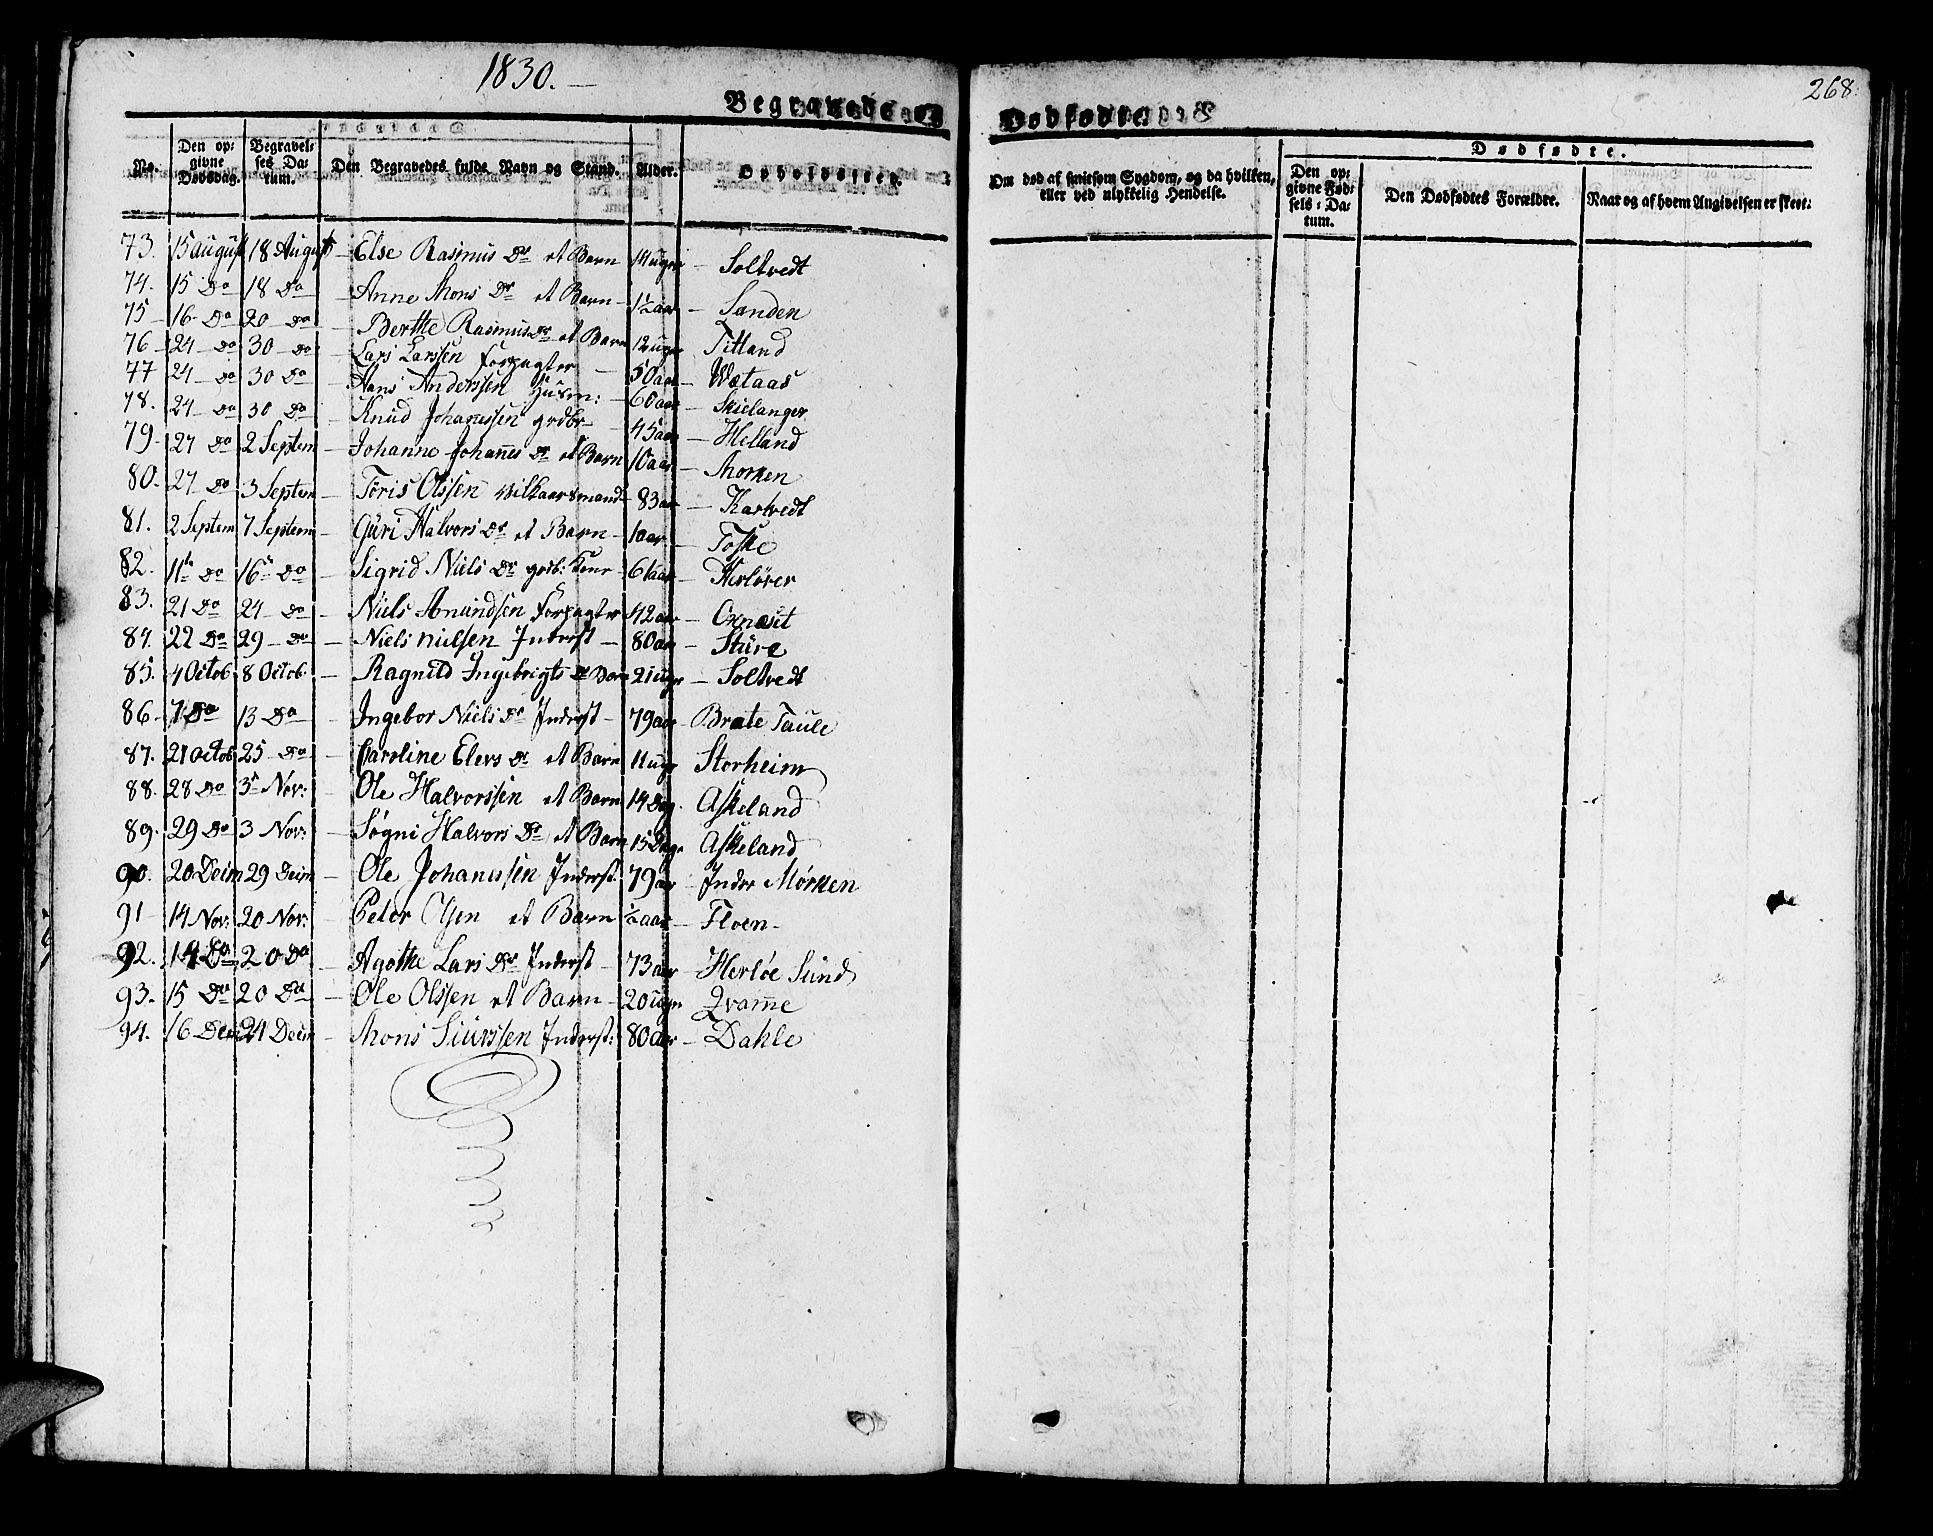 1830. —
268.
Begravede og Dødfødte.
No. | Den opgivne Dødsdag. | Begravelses Datum. | Den Begravedes fulde Navn og Stand. | Alder. | Opholdssted. | Om død af smitsom Sygdom, og da hvilken, eller ved ulykkelig Hendelse. | Dødfødte. | Den opgivne Fødsels-Datum. | Den Dødfødtes Forældre. | Naar og af hvem Angivelsen er skeet.
73. 15 august 18 August — Else Rasmus Dr et Barn 14 uger — Soltvedt
74. 15 Do 18 Do — Anne Mons Dr et Barn — 1½ aar — Sanden
75 16 Do 20 Do — Berthe Rasmus Dr et Barn 12 uger Titland
76 24 Do 30 Do — Lars Larssen Forpagter — 50 aar — Wætaas
77 24 Do 30 Do — Hans Anderssen Husm: — 60 aar — Skielanger
78. 24 Do 30 Do — Knud Johanessen grdbr — 45 aar — Helland
79. 27 Do 2 Septem — Johanne Johannes Dr et Barn 10 aar — Morken
80. 27 Do 3 Septem — Toris Olssen Vilkaarsmand 83 aar — Kartvedt
81. 2 Septem 7 Septem — Guri Halvors Dr et Barn — 1 aar — Toske
82. 11te Do 16 Do — Sigrid Niels Dr grdb: Kone — 61 aar — Herlöver
83. 21 Do 24 Do — Niels Amundsen Forpagter 42 aar —
84. 22 Do 29 Do — Niels Nielsen Inderst — 80 aar — Sture
85. 4 Octob 8 Octob. — Ragnild Ingebrigts Dr Barn 21 uger — Soltvedt
86. 7 Do 13 Do — Ingebor Niels Dr Inderst — 79 aar — Brate Taule
87. 21 Octob 25 Do — Caroline Elers Dr et Barn 11 uger Storheim
88. 28 Do 3 Nov: — Ole Halvorssen et Barn 14 Dag. Askeland
89. 29 Do 3 Nov: — Søgni Halvors Dr et Barn 15 Dage Askeland
90. 20 Deim 29 Deim — Ole Johannssen Inderst. 79 aar — Indre Mørken
91 14 Nov: 20 Nov: — Peter Olsen et Barn ½ aar — Floen —
92. 14 Do 20 Do — Agothe Lars Dr Inderst — 73 aar — Herlöe Sund
93. 15 Do 20 Do — Ole Olssen et Barn — 20 uger — Qvame
94. 16 Dem 21 Deim — Mons Siurssen Inderst: 80 aar — Dahle